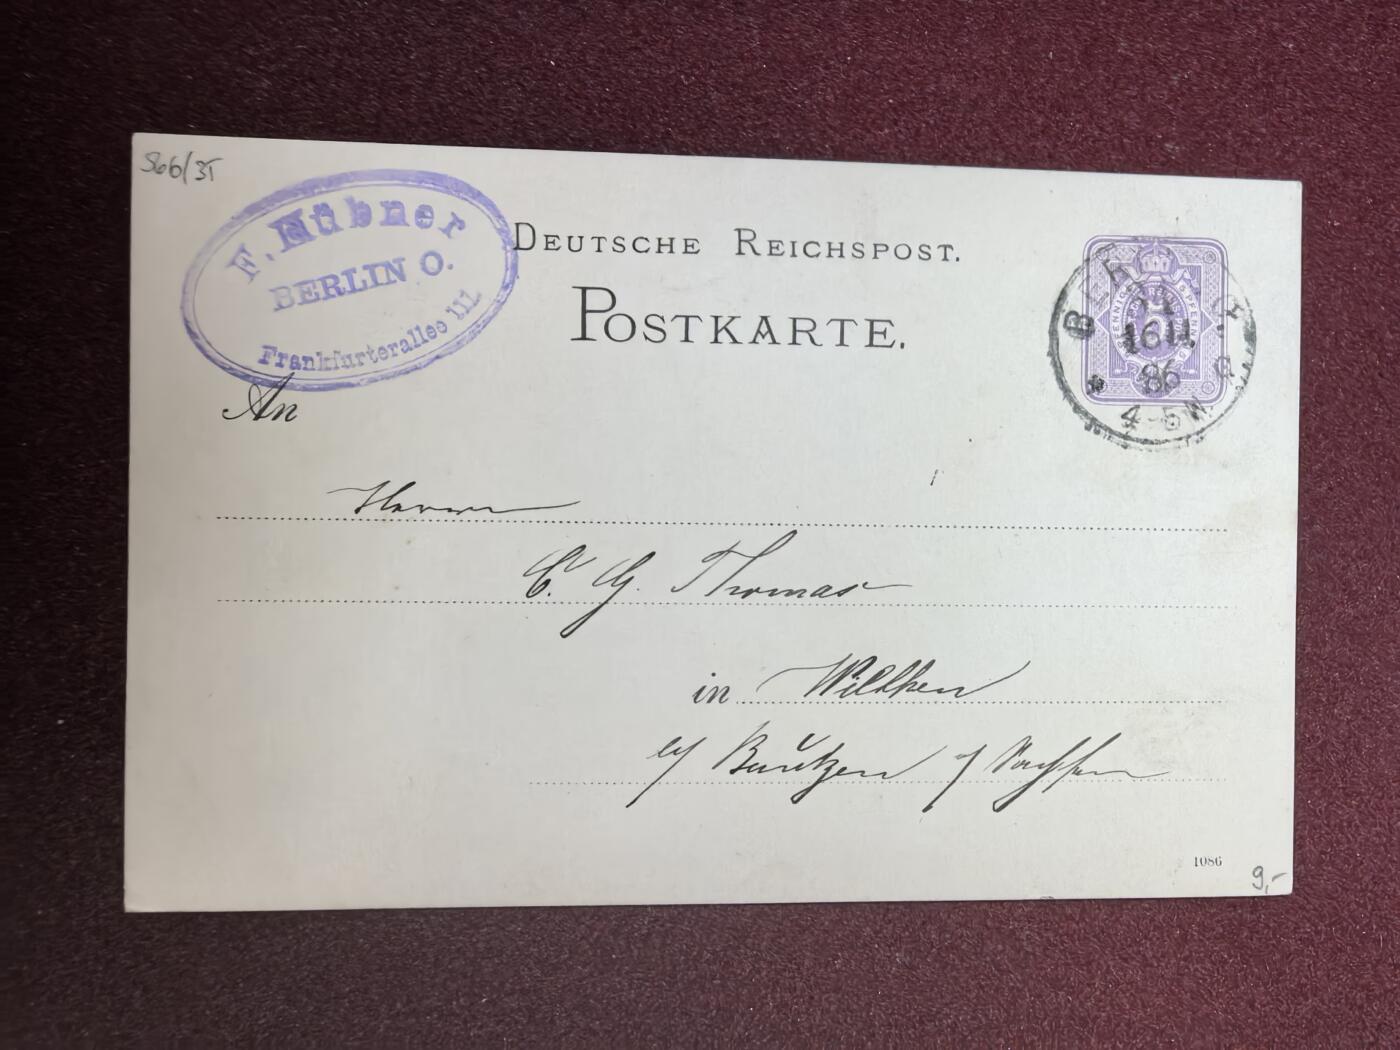 S66/3T
F. Hübner
BERLIN O.
Frankfurterallee 111.
DEUTSCHE REICHSPOST.
POSTKARTE.
BERLIN
16 11
86
4-5N
An
Herrn
C. G. Thomas
in Wilthen
b/ Bautzen i/ Sachsen
1086
9,-